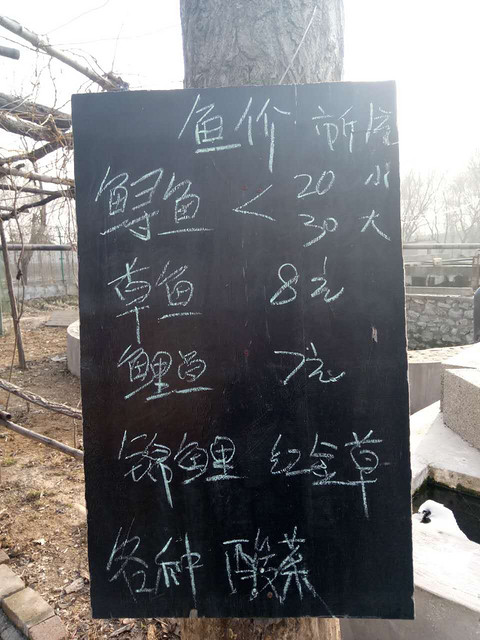 鱼价 市斤
鲟鱼 < 20 小
30 大
草鱼 8元
鲤鱼 7元
锦鲤 红金草
各种 酸菜